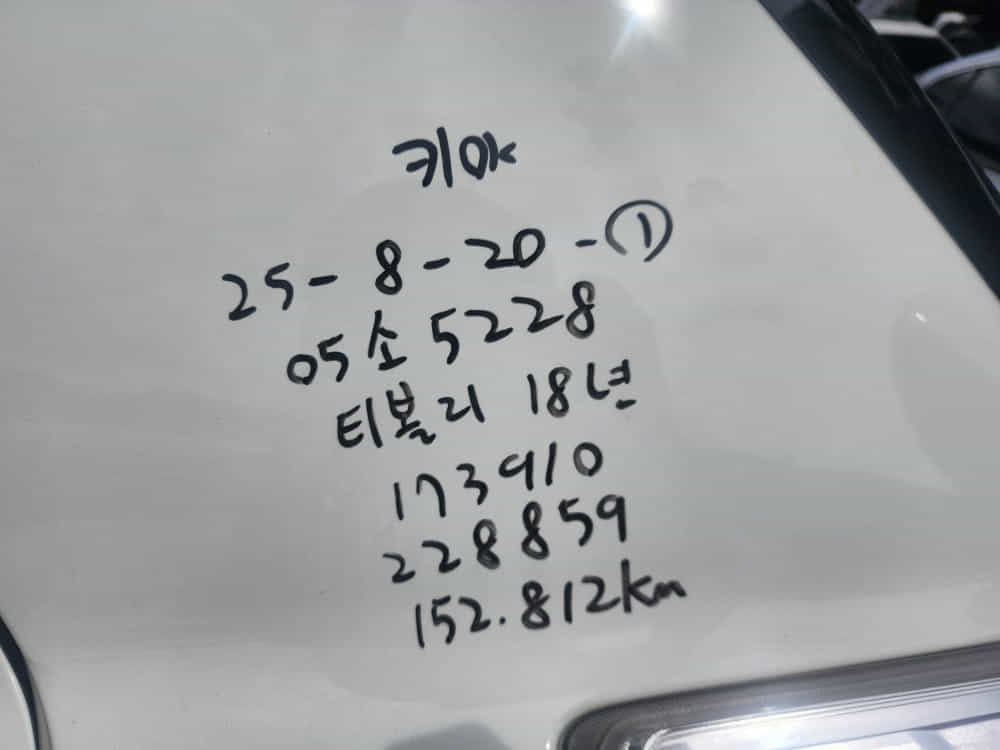 키マ
25-8-20-①
05소5228
티볼리 18년
173910
228859
152.812km